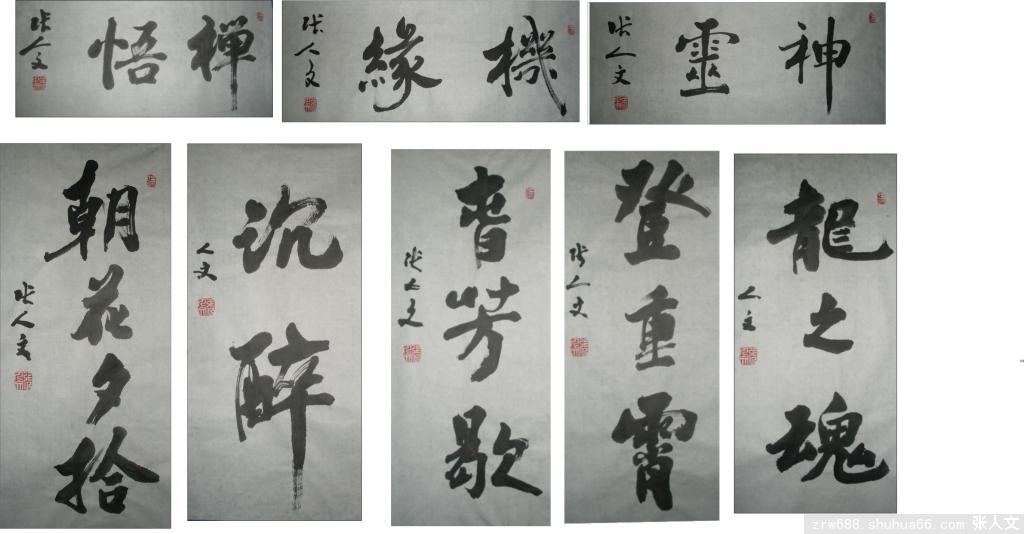 禪悟
张人文
機緣
张人文
神靈
张人文
朝花夕拾
张人文
沉醉
人文
春芳歇
张人文
登重霄
张人文
龍之魂
人文
zrw688.shuhua66.com 张人文